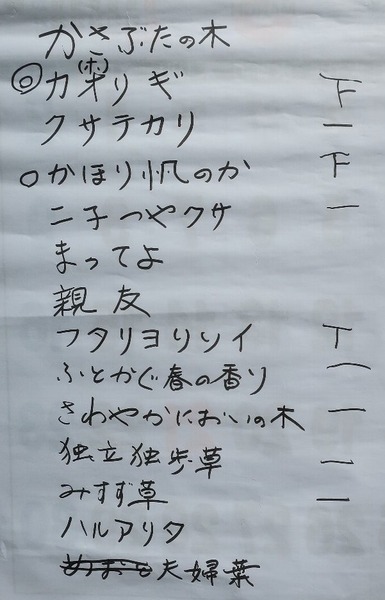 かさぶたの木
◎カオ(ホ)リギ 下
クサテカリ 一
○かほり帆のか 下
二子つやクサ 一
まってよ
親友
フタリヨリソイ 丅
ふとかぐ春の香り 一
さわやかにおいの木 一
独立独歩草 一
みすず草 一
ハルアリタ
夫婦葉